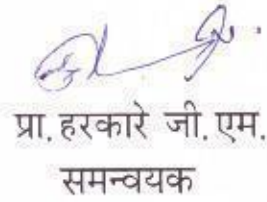 प्रा. हरकारे जी. एम.
समन्वयक